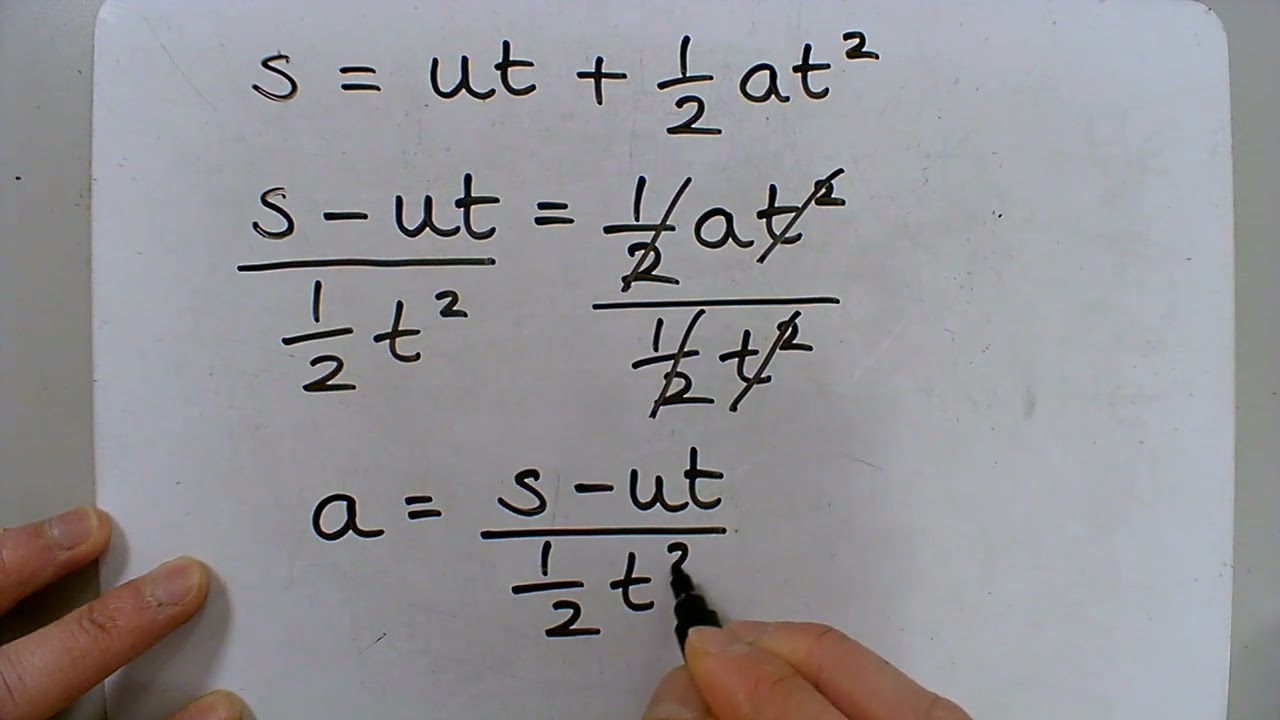 s = ut + ½ at²
s - ut / ½ t² = ½ at² / ½ t²
a = s - ut / ½ t²